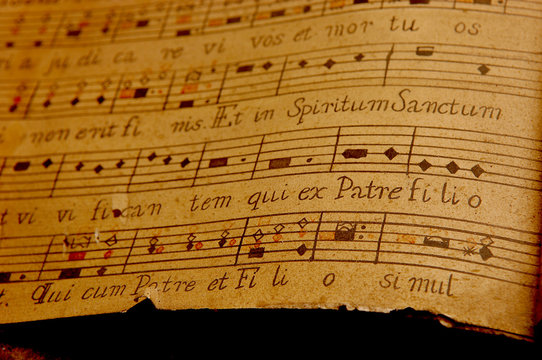 a ju di ca re vi vos et mor tu os
non erit fi nis. Et in Spiritum Sanctum
t vi vi fi can tem qui ex Patre fi li o
t. Qui cum Patre et Fi li o si mul